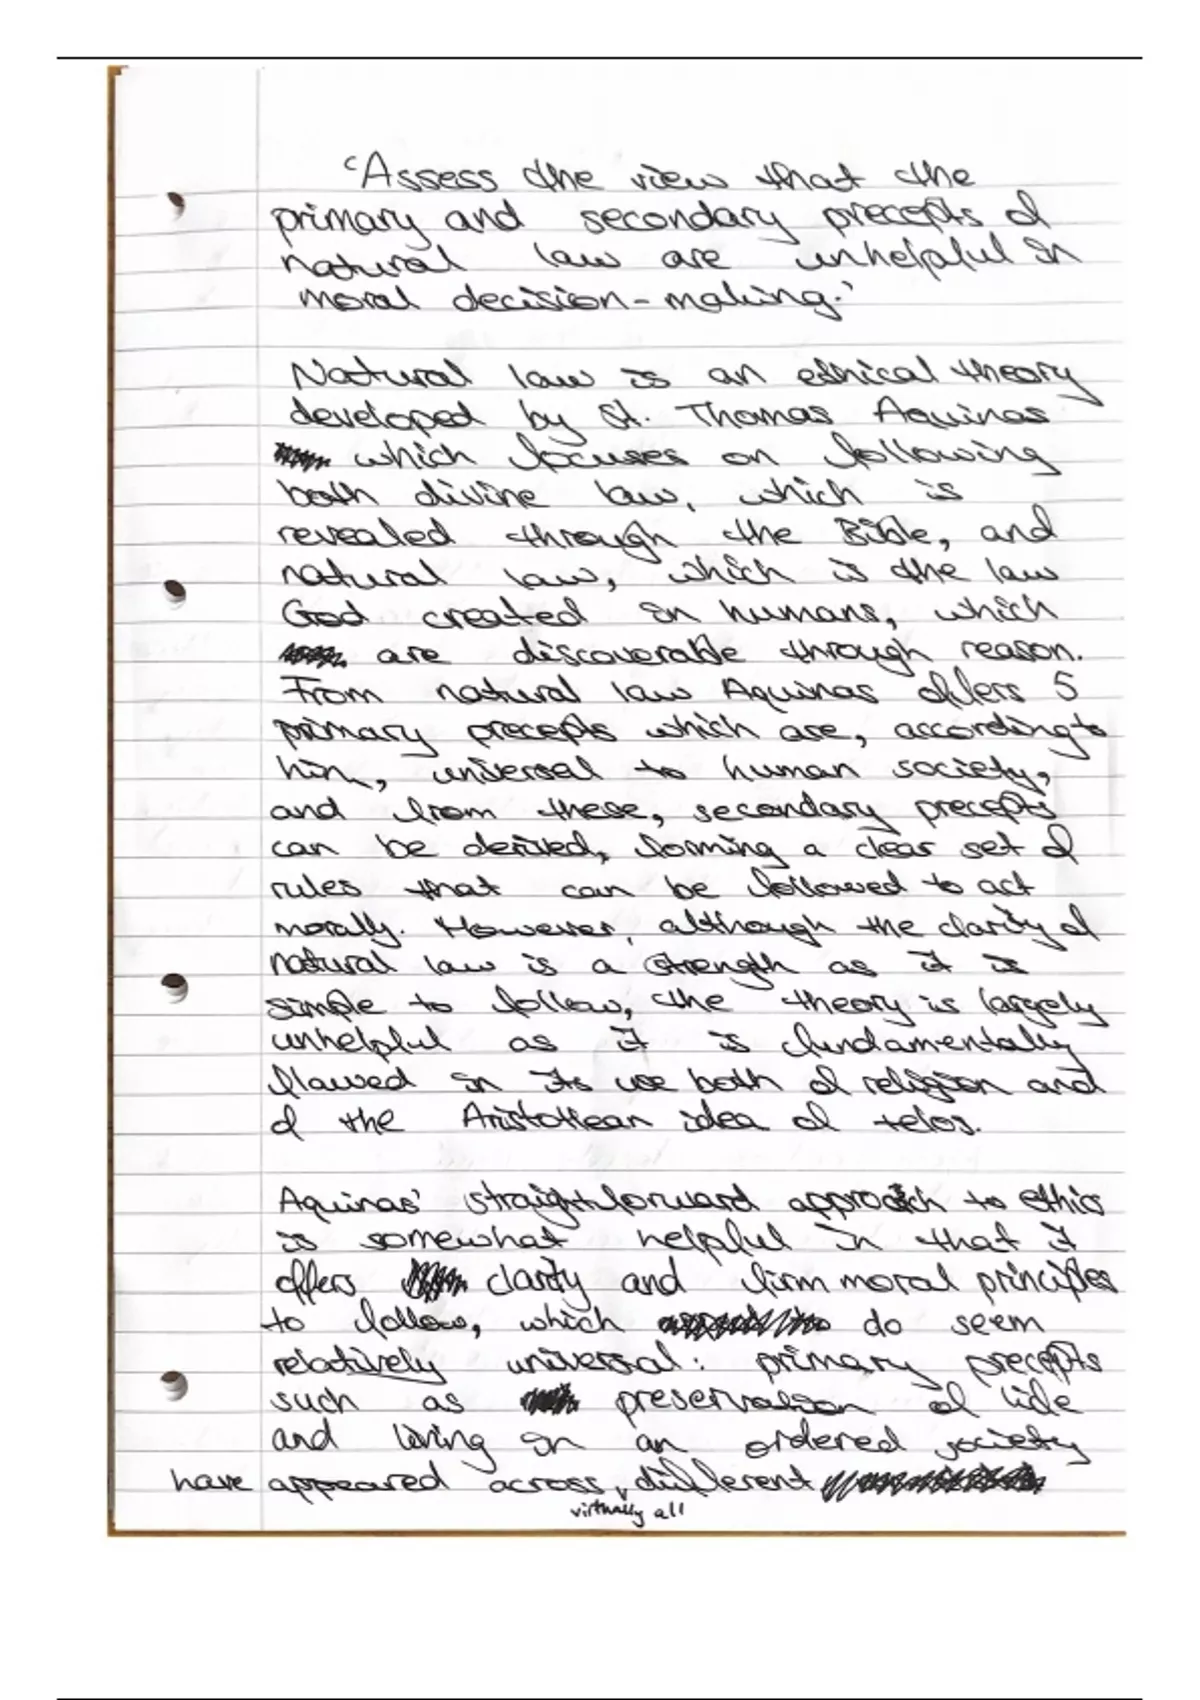 'Assess the view that the
primary and secondary precepts of
natural law are unhelpful in
moral decision-making.'
Natural law is an ethical theory
developed by St. Thomas Aquinas
which focuses on following
both divine law, which is
revealed through the Bible, and
natural law, which is the law
God created in humans, which
are discoverable through reason.
From natural law Aquinas offers 5
primary precepts which are, according to
him, universal to human society,
and from these, secondary precepts
can be derived, forming a clear set of
rules that can be followed to act
morally. However, although the clarity of
natural law is a strength as it is
simple to follow, the theory is largely
unhelpful as it is fundamentally
flawed in its use both of religion and
of the Aristotlean idea of telos.
Aquinas' straightforward approach to ethics
is somewhat helpful in that it
offers clarity and firm moral principles
to follow, which do seem
relatively universal: primary precepts
such as preservation of life
and living in an ordered society
have appeared across virtually all different